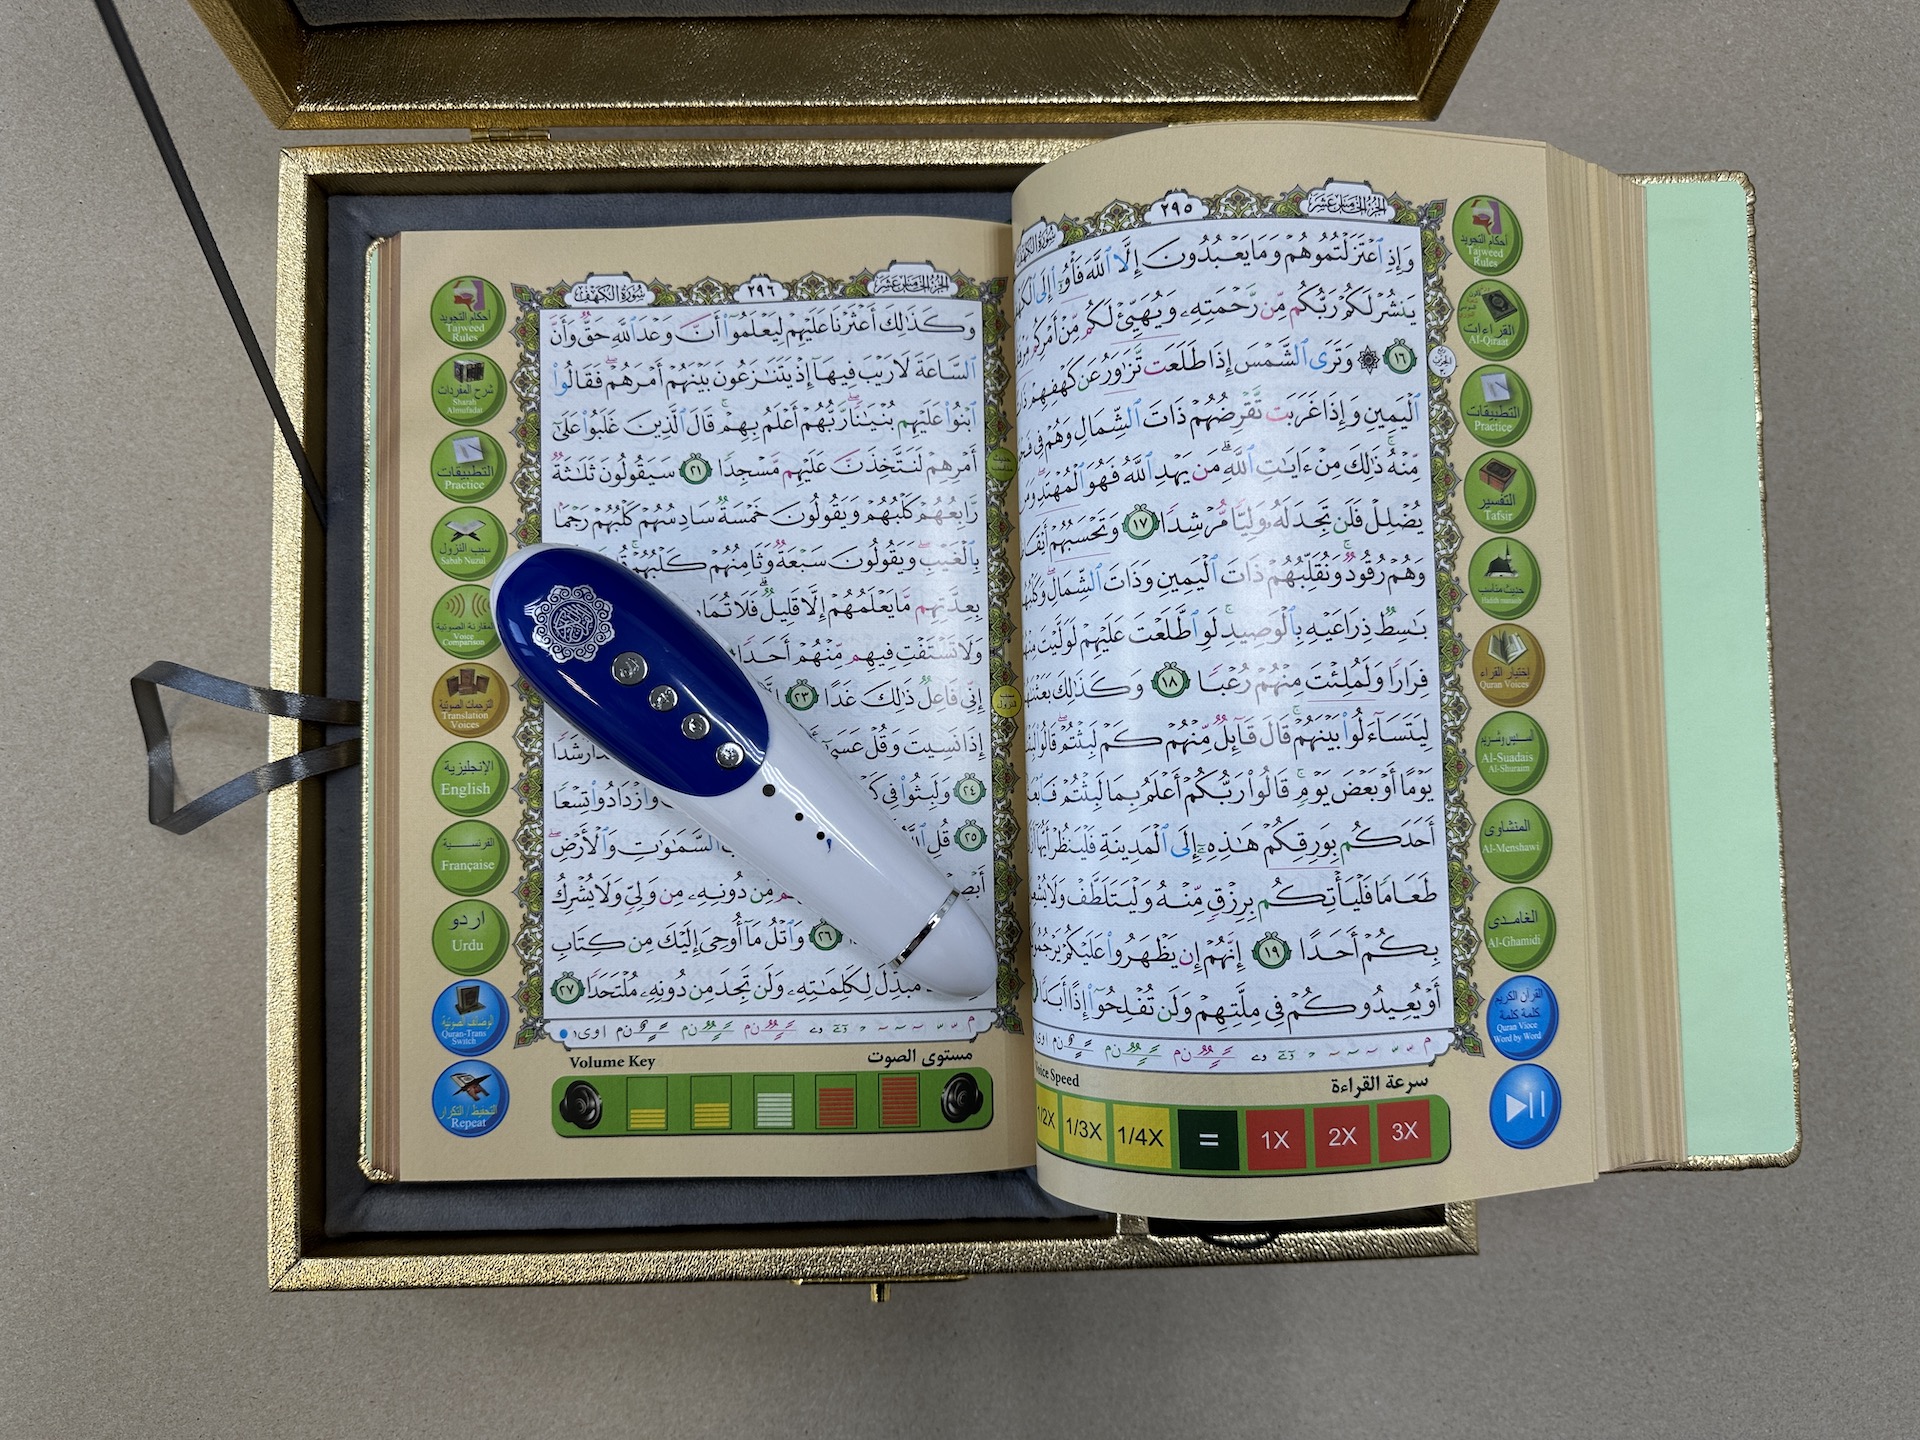 سورة الكهف
٢٩٥
الجزء الخامس عشر
وَإِذِ ٱعْتَزَلْتُمُوهُمْ وَمَا يَعْبُدُونَ إِلَّا ٱللَّهَ فَأْوُۥٓا۟ إِلَى
يَنشُرْ لَكُمْ رَبُّكُم مِّن رَّحْمَتِهِۦ وَيُهَيِّئْ لَكُم مِّنْ أَمْرِكُم
١٦ ۞ وَتَرَى ٱلشَّمْسَ إِذَا طَلَعَت تَّزَٰوَرُ عَن كَهْفِهِمْ
ٱلْيَمِينِ وَإِذَا غَرَبَت تَّقْرِضُهُمْ ذَاتَ ٱلشِّمَالِ وَهُمْ فِى
مِّنْهُ ۚ ذَٰلِكَ مِنْ ءَايَٰتِ ٱللَّهِ ۗ مَن يَهْدِ ٱللَّهُ فَهُوَ ٱلْمُهْتَدِ ۖ
يُضْلِلْ فَلَن تَجِدَ لَهُۥ وَلِيًّا مُّرْشِدًا ١٧ وَتَحْسَبُهُمْ
وَهُمْ رُقُودٌ ۚ وَنُقَلِّبُهُمْ ذَاتَ ٱلْيَمِينِ وَذَاتَ ٱلشِّمَالِ ۖ
بَٰسِطٌ ذِرَاعَيْهِ بِٱلْوَصِيدِ ۚ لَوِ ٱطَّلَعْتَ عَلَيْهِمْ لَوَلَّيْتَ
فِرَارًا وَلَمُلِئْتَ مِنْهُمْ رُعْبًا ١٨ وَكَذَٰلِكَ
لِيَتَسَآءَلُوا۟ بَيْنَهُمْ ۚ قَالَ قَآئِلٌ مِّنْهُمْ كَمْ لَبِثْتُمْ ۖ قَالُوا۟
يَوْمًا أَوْ بَعْضَ يَوْمٍ ۚ قَالُوا۟ رَبُّكُمْ أَعْلَمُ بِمَا لَبِثْتُمْ
أَحَدَكُم بِوَرِقِكُمْ هَٰذِهِۦٓ إِلَى ٱلْمَدِينَةِ فَلْيَنظُرْ أَيُّهَآ
طَعَامًا فَلْيَأْتِكُم بِرِزْقٍ مِّنْهُ وَلْيَتَلَطَّفْ وَلَا
بِكُمْ أَحَدًا ١٩ إِنَّهُمْ إِن يَظْهَرُوا۟ عَلَيْكُمْ
أَوْ يُعِيدُوكُمْ فِى مِلَّتِهِمْ وَلَن تُفْلِحُوٓا۟ إِذًا أَبَدًا
Speed
سرعة القراءة
1/2X 1/3X 1/4X = 1X 2X 3X
أحكام التجويد
Tajweed
Rules
القراءات
Al-Qiraat
التطبيقات
Practice
التفسير
Tafsir
حديث مناسب
إختيار القراء
Quran Voices
السديس وشريم
Al-Suadais
Al-Shuraim
المنشاوى
Al-Menshawi
الغامدى
Al-Ghamidi
القرآن الكريم
كلمة كلمة
Quran Vioce
Word by Word
سورة الكهف
٢٩٦
الجزء الخامس عشر
وَكَذَٰلِكَ أَعْثَرْنَا عَلَيْهِمْ لِيَعْلَمُوٓا۟ أَنَّ وَعْدَ ٱللَّهِ حَقٌّ وَأَنَّ
ٱلسَّاعَةَ لَا رَيْبَ فِيهَآ إِذْ يَتَنَٰزَعُونَ بَيْنَهُمْ أَمْرَهُمْ ۖ فَقَالُوا۟
ٱبْنُوا۟ عَلَيْهِم بُنْيَٰنًا ۖ رَّبُّهُمْ أَعْلَمُ بِهِمْ ۚ قَالَ ٱلَّذِينَ غَلَبُوا۟ عَلَىٰٓ
أَمْرِهِمْ لَنَتَّخِذَنَّ عَلَيْهِم مَّسْجِدًا ٢١ سَيَقُولُونَ ثَلَٰثَةٌ
رَّابِعُهُمْ كَلْبُهُمْ وَيَقُولُونَ خَمْسَةٌ سَادِسُهُمْ كَلْبُهُمْ رَجْمًۢا
بِٱلْغَيْبِ ۖ وَيَقُولُونَ سَبْعَةٌ وَثَامِنُهُمْ كَلْبُهُمْ ۚ
بِعِدَّتِهِم مَّا يَعْلَمُهُمْ إِلَّا قَلِيلٌ ۗ فَلَا
وَلَا تَسْتَفْتِ فِيهِم مِّنْهُمْ أَحَدًا
إِنِّى فَاعِلٌ ذَٰلِكَ غَدًا ٢٣
إِذَا نَسِيتَ وَقُلْ عَسَىٰٓ رَشَدًا
٢٤ وَلَبِثُوا۟ فِى وَٱزْدَادُوا۟ تِسْعًا
٢٥ قُلِ ٱللَّهُ ٱلسَّمَٰوَٰتِ وَٱلْأَرْضِ ۖ
مِّن دُونِهِۦ مِن وَلِىٍّ وَلَا يُشْرِكُ
٢٦ وَٱتْلُ مَآ أُوحِىَ إِلَيْكَ مِن كِتَابِ
مُبَدِّلَ لِكَلِمَٰتِهِۦ وَلَن تَجِدَ مِن دُونِهِۦ مُلْتَحَدًا ٢٧
Volume Key
مستوى الصوت
أحكام التجويد
Tajweed
Rules
شرح المفردات
Sharah
Almufadat
التطبيقات
Practice
سبب النزول
Sabab Nuzul
المقارنة الصوتية
Voice
Comparison
الترجمات الصوتية
Translation
Voices
الإنجليزية
English
الفرنسية
Française
اردو
Urdu
الوضائف الصوتية
Quran-Trans
Switch
التحفيظ / التكرار
Repeat